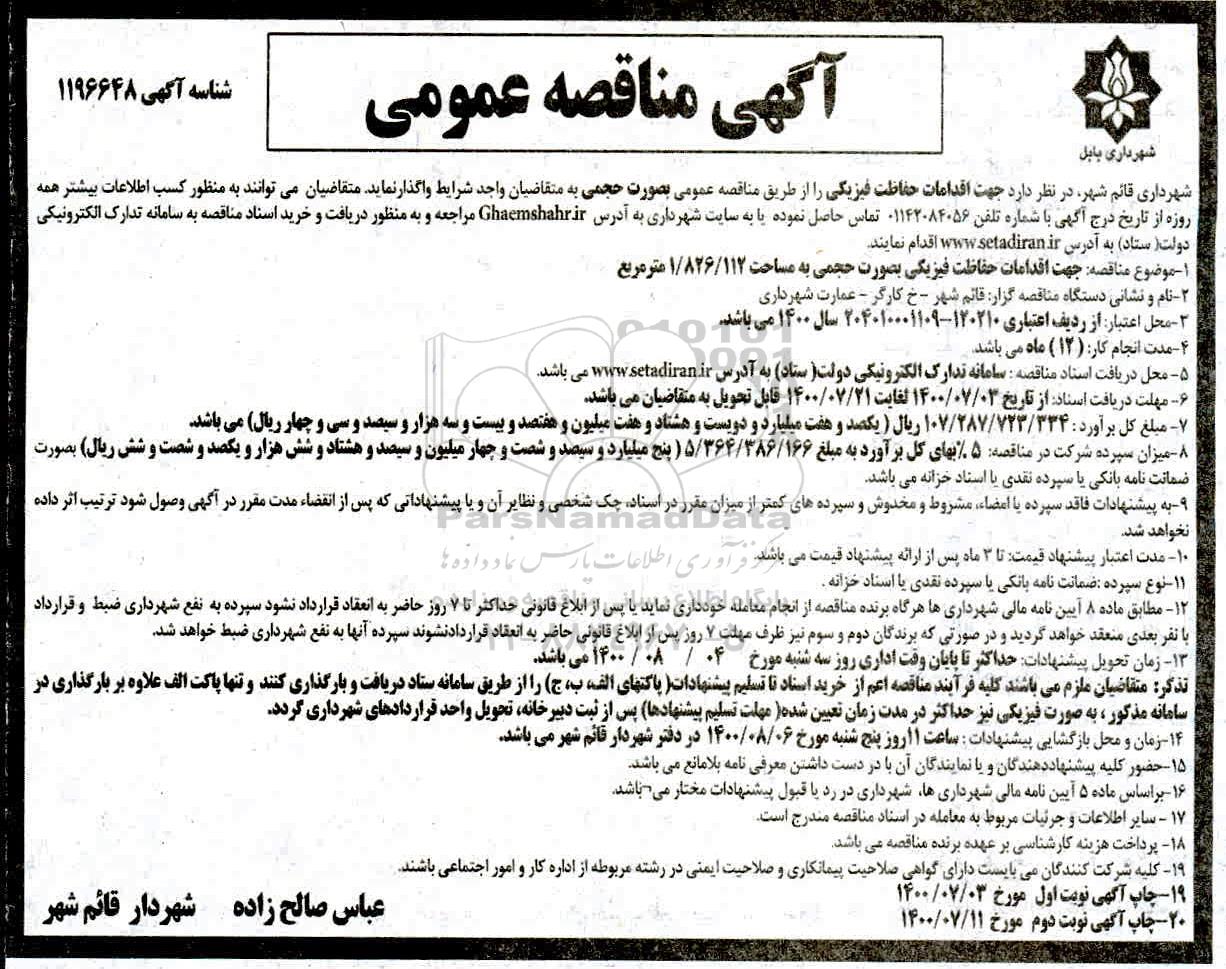 آگهی مناقصه عمومی
شناسه آگهی ۱۱۹۶۶۴۸
شهرداری بابل
شهرداری قائم شهر، در نظر دارد جهت اقدامات حفاظت فیزیکی را از طریق مناقصه عمومی بصورت حجمی به متقاضیان واجد شرایط واگذارنماید. متقاضیان می توانند به منظور کسب اطلاعات بیشتر همه
روزه از تاریخ درج آگهی با شماره تلفن ۰۱۱۴۲۰۸۴۰۵۶ تماس حاصل نموده یا به سایت شهرداری به آدرس Ghaemshahr.ir مراجعه و به منظور دریافت و خرید اسناد مناقصه به سامانه تدارک الکترونیکی
دولت( ستاد) به آدرس www.setadiran.ir اقدام نمایند.
۱-موضوع مناقصه: جهت اقدامات حفاظت فیزیکی بصورت حجمی به مساحت ۱/۸۲۶/۱۱۲ مترمربع
۲-نام و نشانی دستگاه مناقصه گزار: قائم شهر -خ کارگر - عمارت شهرداری
۳-محل اعتبار: از ردیف اعتباری ۱۲۰۲۱۰--۲۰۴۰۱۰۰۰۱۱۰۹ سال ۱۴۰۰ می باشد.
۴-مدت انجام کار: ( ۱۲ ) ماه می باشد.
۵- محل دریافت اسناد مناقصه : سامانه تدارک الکترونیکی دولت( ستاد) به آدرس www.setadiran.ir می باشد.
۶- مهلت دریافت اسناد: از تاریخ ۱۴۰۰/۰۷/۰۳ لغایت ۱۴۰۰/۰۷/۲۱ قابل تحویل به متقاضیان می باشد.
۷- مبلغ کل برآورد : ۱۰۷/۲۸۷/۷۲۳/۳۳۴ ریال ( یکصد و هفت میلیارد و دویست و هشتاد و هفت میلیون و هفتصد و بیست و سه هزار و سیصد و سی و چهار ریال) می باشد.
۸-میزان سپرده شرکت در مناقصه: ۵ ٪بهای کل برآورد به مبلغ ۵/۳۶۴/۳۸۶/۱۶۶ ( پنج میلیارد و سیصد و شصت و چهار میلیون و سیصد و هشتاد و شش هزار و یکصد و شصت و شش ریال) بصورت
ضمانت نامه بانکی یا سپرده نقدی یا اسناد خزانه می باشد.
۹-به پیشنهادات فاقد سپرده یا امضاء، مشروط و مخدوش و سپرده های کمتر از میزان مقرر در اسناد، چک شخصی و نظایر آن و یا پیشنهاداتی که پس از انقضاء مدت مقرر در آگهی وصول شود ترتیب اثر داده
نخواهد شد.
۱۰- مدت اعتبار پیشنهاد قیمت: تا ۳ ماه پس از ارائه پیشنهاد قیمت می باشد.
۱۱-نوع سپرده :ضمانت نامه بانکی یا سپرده نقدی یا اسناد خزانه .
۱۲- مطابق ماده ۸ آیین نامه مالی شهرداری ها هرگاه برنده مناقصه از انجام معامله خودداری نماید یا پس از ابلاغ قانونی حداکثر تا ۷ روز حاضر به انعقاد قرارداد نشود سپرده به نفع شهرداری ضبط و قرارداد
با نفر بعدی منعقد خواهد گردید و در صورتی که برندگان دوم و سوم نیز ظرف مهلت ۷ روز پس از ابلاغ قانونی حاضر به انعقاد قراردادنشوند سپرده آنها به نفع شهرداری ضبط خواهد شد.
۱۳- زمان تحویل پیشنهادات: حداکثر تا پایان وقت اداری روز سه شنبه مورخ ۰۴ / ۰۸ / ۱۴۰۰ می باشد.
تذکر: متقاضیان ملزم می باشند کلیه فرآیند مناقصه اعم از خرید اسناد تا تسلیم پیشنهادات( پاکتهای الف، ب، ج) را از طریق سامانه ستاد دریافت و بارگذاری کنند و تنها پاکت الف علاوه بر بارگذاری در
سامانه مذکور ، به صورت فیزیکی نیز حداکثر در مدت زمان تعیین شده( مهلت تسلیم پیشنهادها) پس از ثبت دبیرخانه، تحویل واحد قراردادهای شهرداری گردد.
۱۴-زمان و محل بازگشایی پیشنهادات : ساعت ۱۱روز پنج شنبه مورخ ۱۴۰۰/۰۸/۰۶ در دفتر شهردار قائم شهر می باشد.
۱۵-حضور کلیه پیشنهاددهندگان و یا نمایندگان آن با در دست داشتن معرفی نامه بلامانع می باشد.
۱۶-براساس ماده ۵ آیین نامه مالی شهرداری ها، شهرداری در رد یا قبول پیشنهادات مختار می¬باشد.
۱۷ - سایر اطلاعات و جزئیات مربوط به معامله در اسناد مناقصه مندرج است.
۱۸- پرداخت هزینه کارشناسی بر عهده برنده مناقصه می باشد.
۱۹- کلیه شرکت کنندگان می بایست دارای گواهی صلاحیت پیمانکاری و صلاحیت ایمنی در رشته مربوطه از اداره کار و امور اجتماعی باشند.
۱۹-چاپ آگهی نوبت اول مورخ ۱۴۰۰/۰۷/۰۳
۲۰-چاپ آگهی نوبت دوم مورخ ۱۴۰۰/۰۷/۱۱
عباس صالح زاده شهردار قائم شهر
ParsNamadData
مرکز فرآوری اطلاعات پارس نماد داده ها